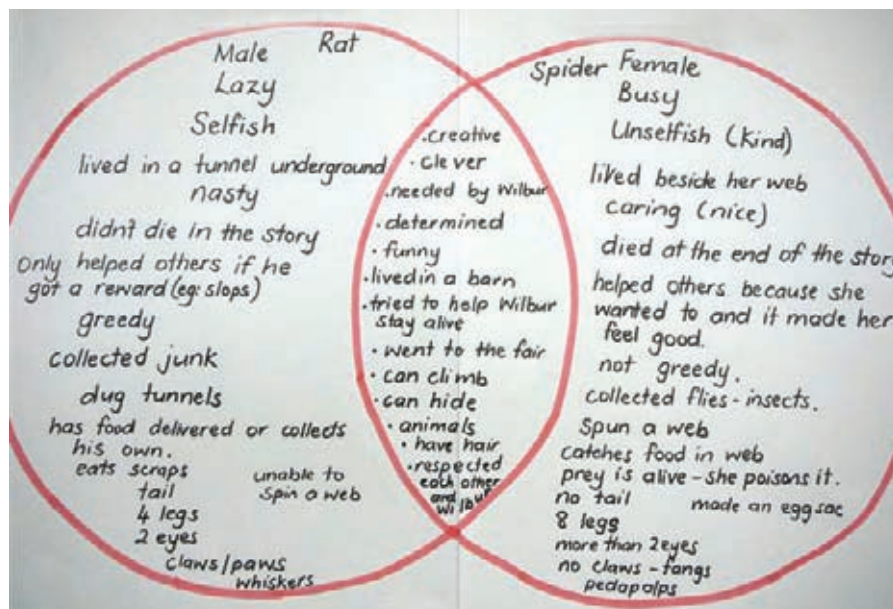 Male Rat
Lazy
Selfish
lived in a tunnel underground
nasty
didn't die in the story
Only helped others if he
got a reward (eg: slops)
greedy
collected junk
dug tunnels
has food delivered or collects
his own.
eats scraps
unable to
spin a web
tail
4 legs
2 eyes
claws/paws
whiskers
.creative
.clever
.needed by Wilbur
.determined
.funny
.lived in a barn
.tried to help Wilbur
stay alive
.went to the fair
.can climb
.can hide
.animals
.have hair
.respected
each other
and
wilbur
Spider Female
Busy
Unselfish (kind)
lived beside her web
caring (nice)
died at the end of the story
helped others because she
wanted to and it made her
feel good.
not greedy.
collected flies - insects.
spun a web
catches food in web
prey is alive - she poisons it.
no tail
made an egg sac
8 legs
more than 2 eyes
no claws - fangs
pedapalps